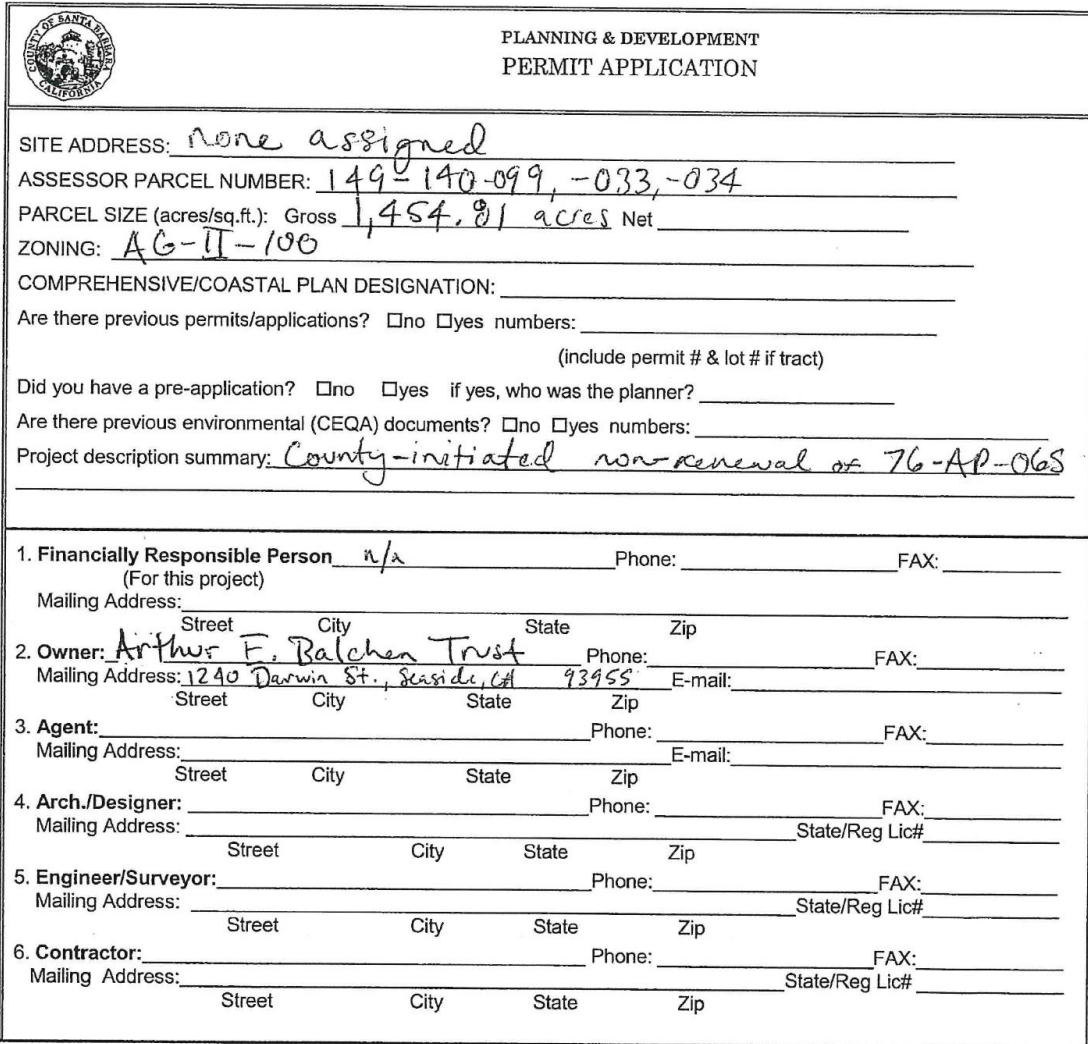 COUNTY OF SANTA BARBARA
CALIFORNIA
PLANNING & DEVELOPMENT
PERMIT APPLICATION
SITE ADDRESS: none assigned
ASSESSOR PARCEL NUMBER: 149-140-099, -033, -034
PARCEL SIZE (acres/sq.ft.): Gross 1,454.81 acres Net
ZONING: AG-II-100
COMPREHENSIVE/COASTAL PLAN DESIGNATION:
Are there previous permits/applications? ☐no ☐yes numbers:
(include permit # & lot # if tract)
Did you have a pre-application? ☐no ☐yes if yes, who was the planner?
Are there previous environmental (CEQA) documents? ☐no ☐yes numbers:
Project description summary: County-initiated non-renewal of 76-AP-065
1. Financially Responsible Person n/a Phone: FAX:
(For this project)
Mailing Address:
Street City State Zip
2. Owner: Arthur F. Balchen Trust Phone: FAX:
Mailing Address: 1240 Darwin St., Seaside, CA 93955 E-mail:
Street City State Zip
3. Agent: Phone: FAX:
Mailing Address: E-mail:
Street City State Zip
4. Arch./Designer: Phone: FAX:
Mailing Address: State/Reg Lic#
Street City State Zip
5. Engineer/Surveyor: Phone: FAX:
Mailing Address: State/Reg Lic#
Street City State Zip
6. Contractor: Phone: FAX:
Mailing Address: State/Reg Lic#
Street City State Zip